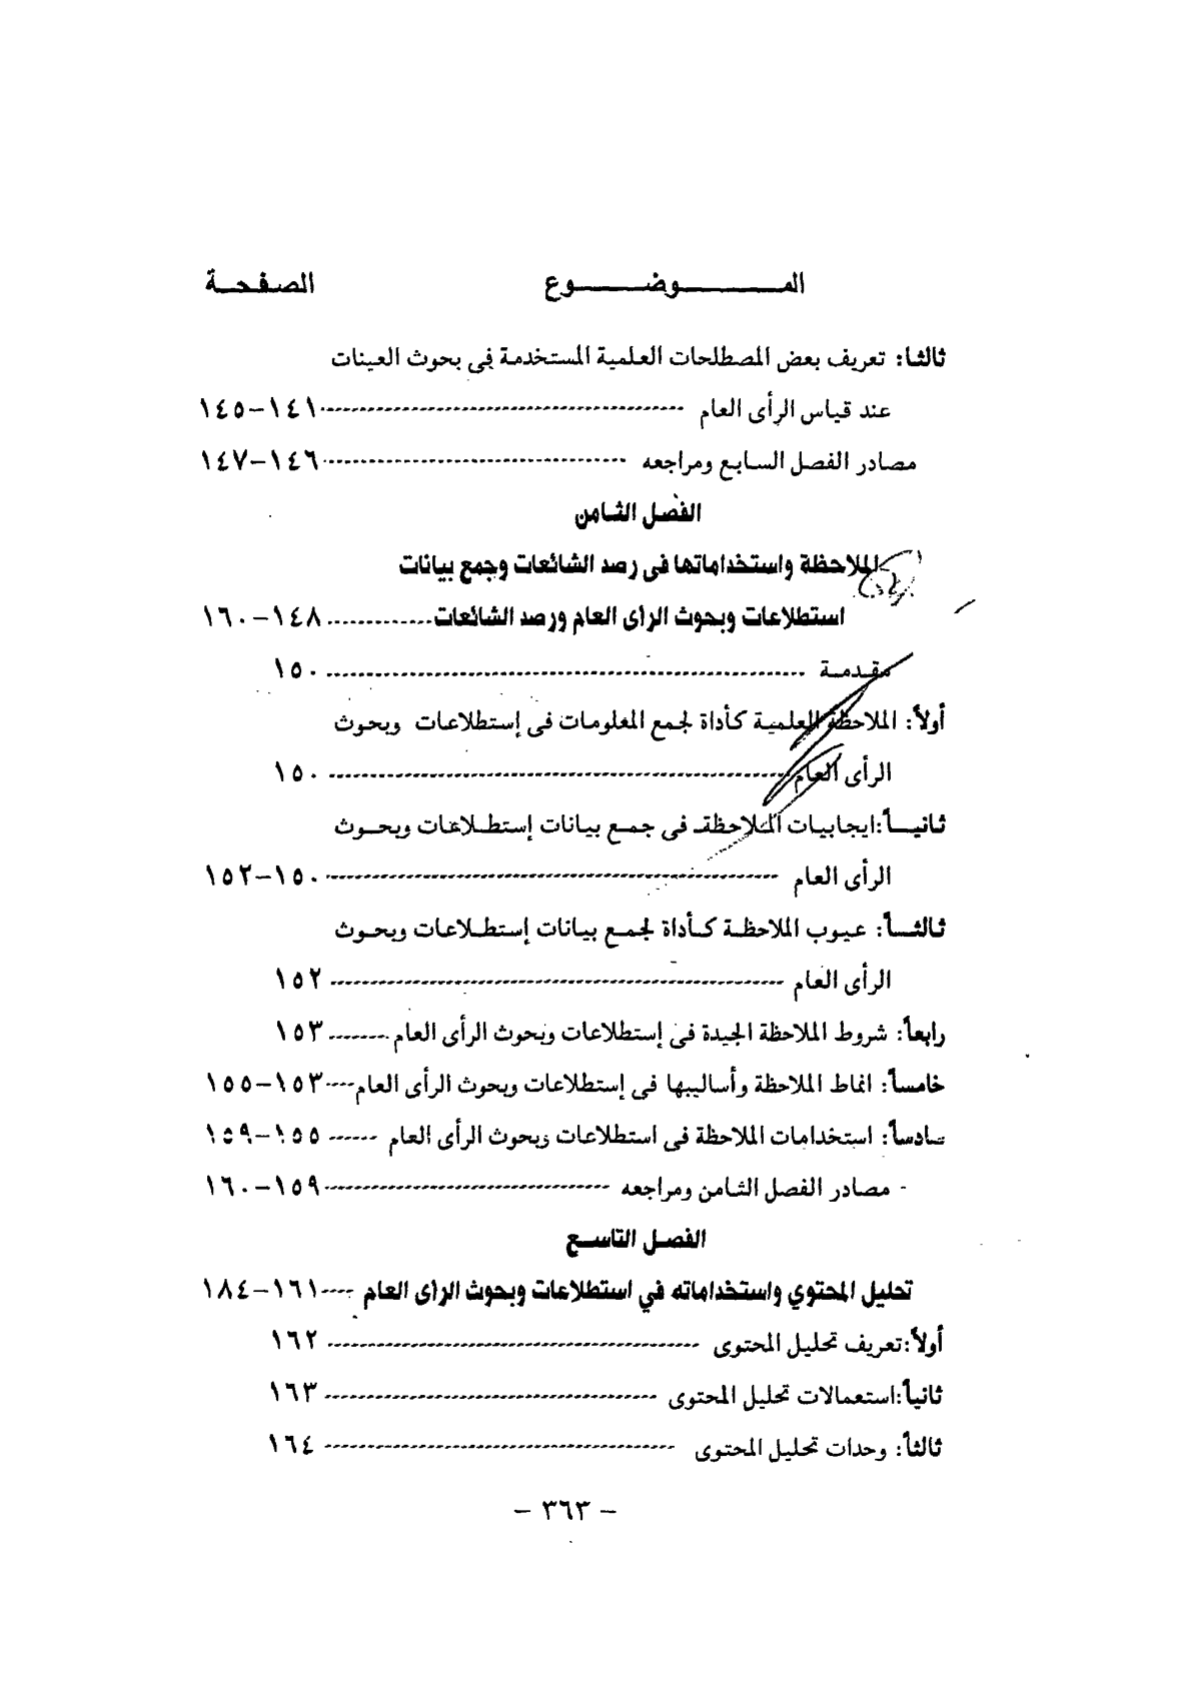 الموضوع الصفحة
ثالثا: تعريف بعض المصطلحات العلمية المستخدمة فى بحوث العينات
عند قياس الرأى العام ------- ١٤١–١٤٥
مصادر الفصل السابع ومراجعه ------- ١٤٦–١٤٧
الفصل الثامن
الملاحظة واستخداماتها فى رصد الشائعات وجمع بيانات
استطلاعات وبحوث الرأى العام ورصد الشائعات ............. ١٤٨–١٦٠
مقدمة ------- ١٥٠
أولاً: الملاحظة العلمية كأداة لجمع المعلومات فى إستطلاعات وبحوث
الرأى العام ------- ١٥٠
ثانيـاً: ايجابيات الملاحظة فى جمـع بيانات إستطـلاعات وبحـوث
الرأى العام ------- ١٥٠–١٥٢
ثالثـاً: عيـوب الملاحظـة كـأداة لجمـع بيـانات إستطـلاعات وبحـوث
الرأى العام ------- ١٥٢
رابعاً: شروط الملاحظة الجيدة فى إستطلاعات وبحوث الرأى العام ------- ١٥٣
خامساً: انماط الملاحظة وأساليبها فى إستطلاعات وبحوث الرأى العام ---- ١٥٣–١٥٥
سادساً: استخدامات الملاحظة فى استطلاعات وبحوث الرأى العام ------ ١٥٥–١٥٩
- مصادر الفصل الثامن ومراجعه ------- ١٥٩–١٦٠
الفصل التاسع
تحليل المحتوي واستخداماته في استطلاعات وبحوث الرأى العام ---- ١٦١–١٨٤
أولاً: تعريف تحليل المحتوى ------- ١٦٢
ثانياً: استعمالات تحليل المحتوى ------- ١٦٣
ثالثاً: وحدات تحليل المحتوى ------- ١٦٤
– ٣٦٣ –